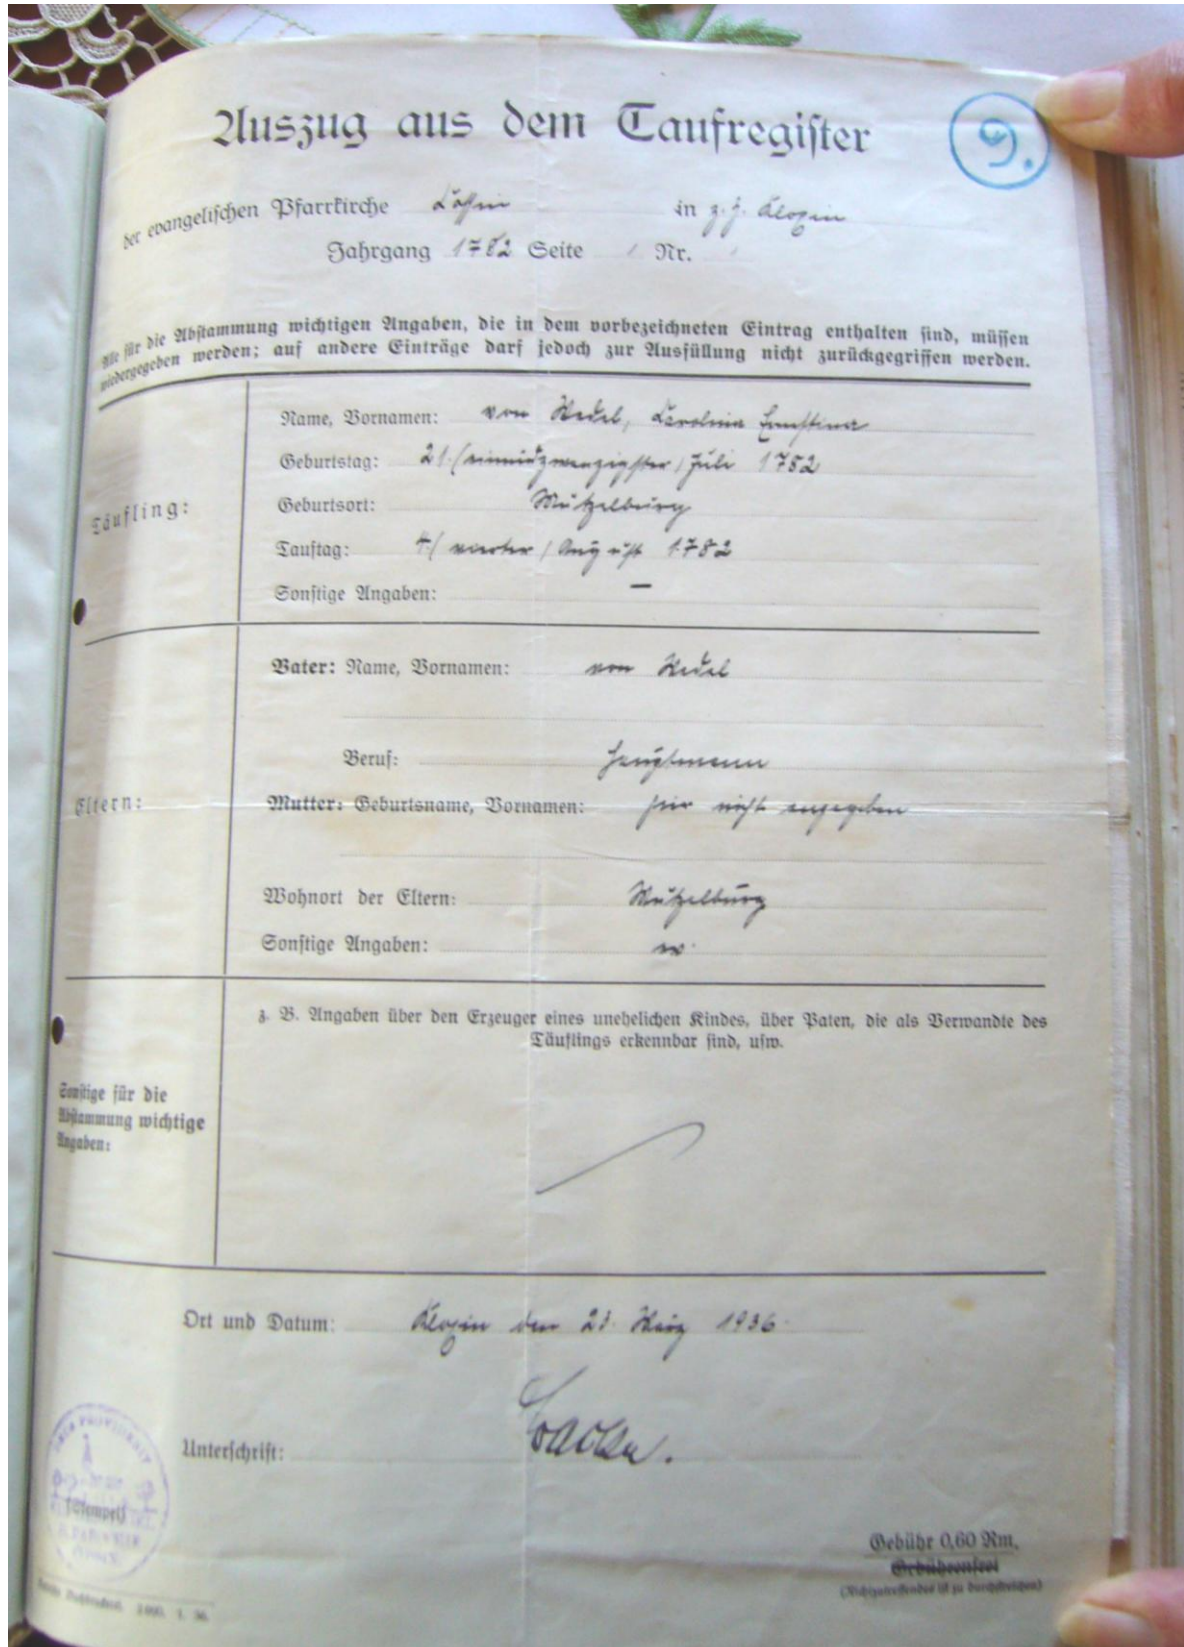 Auszug aus dem Taufregister
9.
der evangelischen Pfarrkirche in z. Z. Kloxin
Jahrgang 1782 Seite Nr.
Alle für die Abstammung wichtigen Angaben, die in dem vorbezeichneten Eintrag enthalten sind, müssen
wiedergegeben werden; auf andere Einträge darf jedoch zur Ausfüllung nicht zurückgegriffen werden.
Täufling:
Name, Vornamen: von Wedel, Karolina Ernstina
Geburtstag: 21. (einundzwanzigster) Juli 1782
Geburtsort: Mützelburg
Tauftag: 4. (vierter) August 1782
Sonstige Angaben: —
Eltern:
Vater: Name, Vornamen: von Wedel
Beruf: Hauptmann
Mutter: Geburtsname, Vornamen: hier nicht angegeben
Wohnort der Eltern: Mützelburg
Sonstige Angaben:
Sonstige für die
Abstammung wichtige
Angaben:
z. B. Angaben über den Erzeuger eines unehelichen Kindes, über Paten, die als Verwandte des
Täuflings erkennbar sind, usw.
Ort und Datum: Kloxin den 21. März 1936.
Unterschrift:
(Stempel)
Gebühr 0,60 Rm.
Gebührenfrei
(Nichtzutreffendes ist zu durchstreichen)